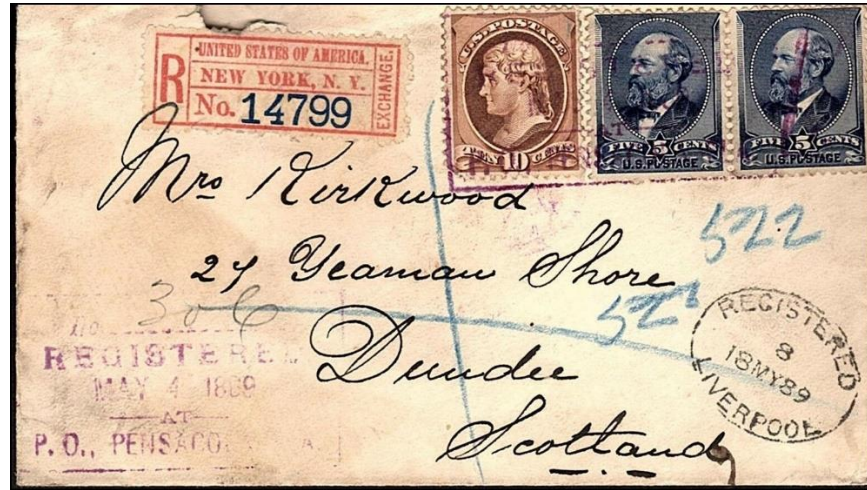 UNITED STATES OF AMERICA.
R
NEW YORK, N. Y.
No. 14799
EXCHANGE.
U.S. POSTAGE
TEN 10 CENTS
FIVE 5 CENTS
U.S. POSTAGE
FIVE 5 CENTS
U.S. POSTAGE
Mrs Kirkwood
24 Yeaman Shore
Dundee
Scotland
522
306
REGISTERED
MAY 4 1889
AT
P. O., PENSACO
REGISTERED
8
18MY89
LIVERPOOL